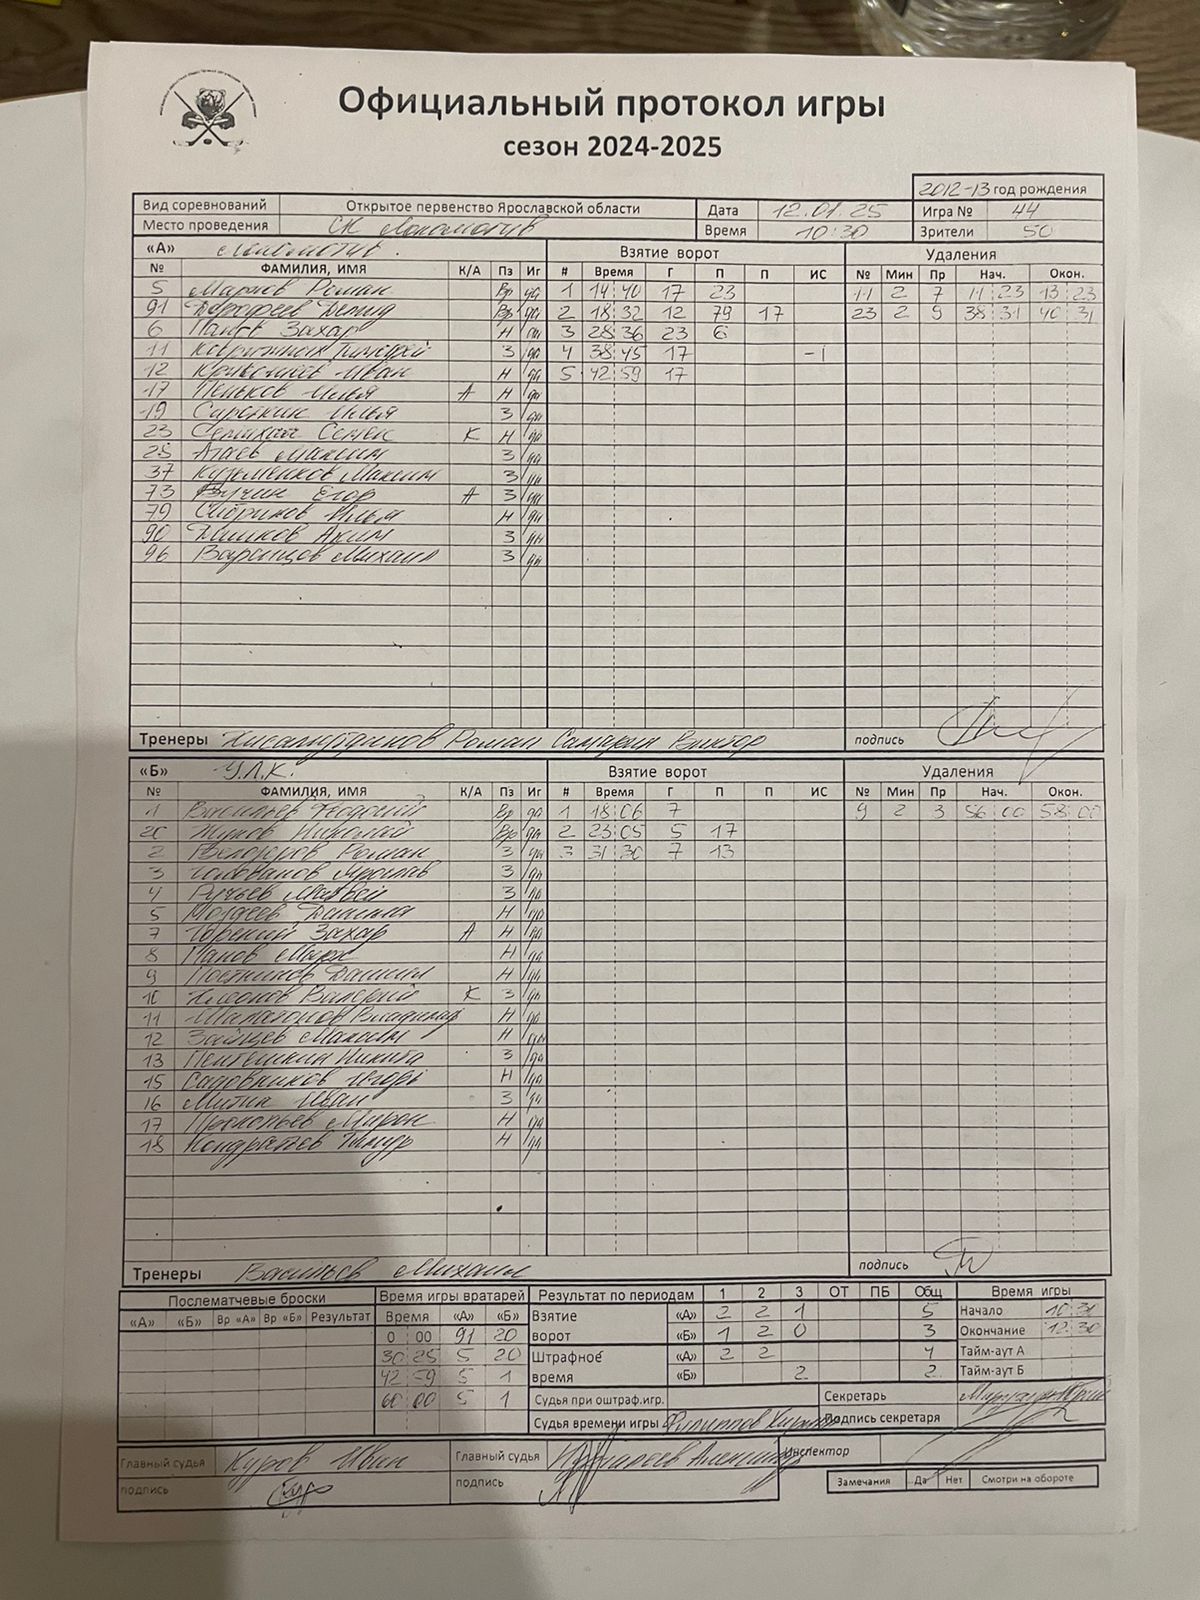 Официальный протокол игры
сезон 2024-2025
2012-13 год рождения
Вид соревнований Открытое первенство Ярославской области Дата 12.01.25 Игра № 44
Место проведения СК Локомотив Время 10:30 Зрители 50
«А» Локомотив Взятие ворот Удаления
№ ФАМИЛИЯ, ИМЯ К/А Пз Иг # Время Г П П ИС № Мин Пр Нач. Окон.
5 Роман Вр да 1 14 40 17 23 11 2 7 11 23 13 23
91 Дорофеев Демид Вр да 2 18 32 12 79 17 23 2 9 38 31 40 31
6 Панов Захар Н да 3 28 36 23 6
11 Тимофей З да 4 38 45 17 -1
12 Иван Н да 5 42 59 17
17 Пеньков Илья А Н да
19 Илья З да
23 Семен К Н да
25 Агаев Максим З да
37 Кузьменков Максим З да
73 Вучин Егор А З да
79 Илья Н да
90 Аким З да
96 Варенцов Михаил З да
Тренеры Роман Виктор подпись
«Б» У.Л.К. Взятие ворот Удаления
№ ФАМИЛИЯ, ИМЯ К/А Пз Иг # Время Г П П ИС № Мин Пр Нач. Окон.
1 Васильев Георгий Вр да 1 18 06 7 9 2 3 56 00 58 00
20 Николай Вр да 2 23 05 5 17
2 Роман З да 3 31 30 7 13
3 Голованов Ярослав З да
4 Ручьев Матвей З да
5 Н да
7 Горский Захар А Н да
8 Панов Марк Н да
9 Постников Даниил Н да
10 Валерий К З да
11 Владимир Н да
12 Зайцев Максим Н да
13 Никита З да
15 Садовников Игорь Н да
16 Митин Иван З да
17 Прокопьев Мирон Н да
18 Кондратьев Тимур Н да
Тренеры Васильев Михаил подпись
Послематчевые броски Время игры вратарей Результат по периодам 1 2 3 ОТ ПБ Общ Время игры
«А» «Б» Вр «А» Вр «Б» Результат Время «А» «Б» Взятие «А» 2 2 1 5 Начало 10 30
0 00 91 20 ворот «Б» 1 2 0 3 Окончание 12 30
30 25 5 20 Штрафное «А» 2 2 4 Тайм-аут А
42 59 5 1 время «Б» 2 2 Тайм-аут Б
60 00 5 1 Судья при оштраф.игр. Секретарь
Судья времени игры Филиппов Подпись секретаря
Главный судья Куров Иван Главный судья Инспектор
подпись подпись Замечания Да Нет Смотри на обороте